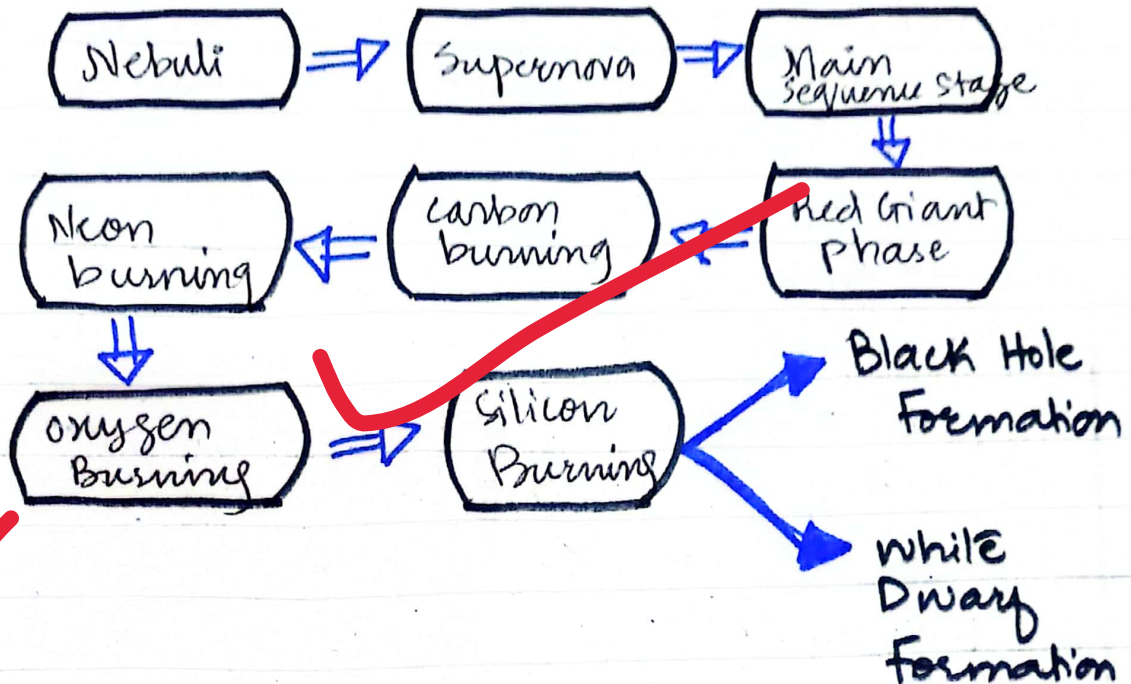 Nebuli
Supernova
Main
sequence stage
Red Giant
phase
carbon
burning
Neon
burning
oxygen
Burning
Silicon
Burning
Black Hole
Formation
While
Dwarf
Formation